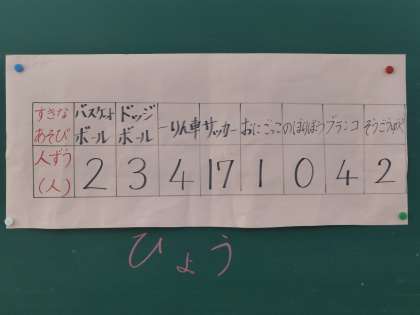 すきな あそび バスケット ボール ドッジ ボール 一りん車 サッカー おにごっこ のぼりぼう ブランコ
人ずう (人) 2 3 4 17 1 0 4 2
ひょう